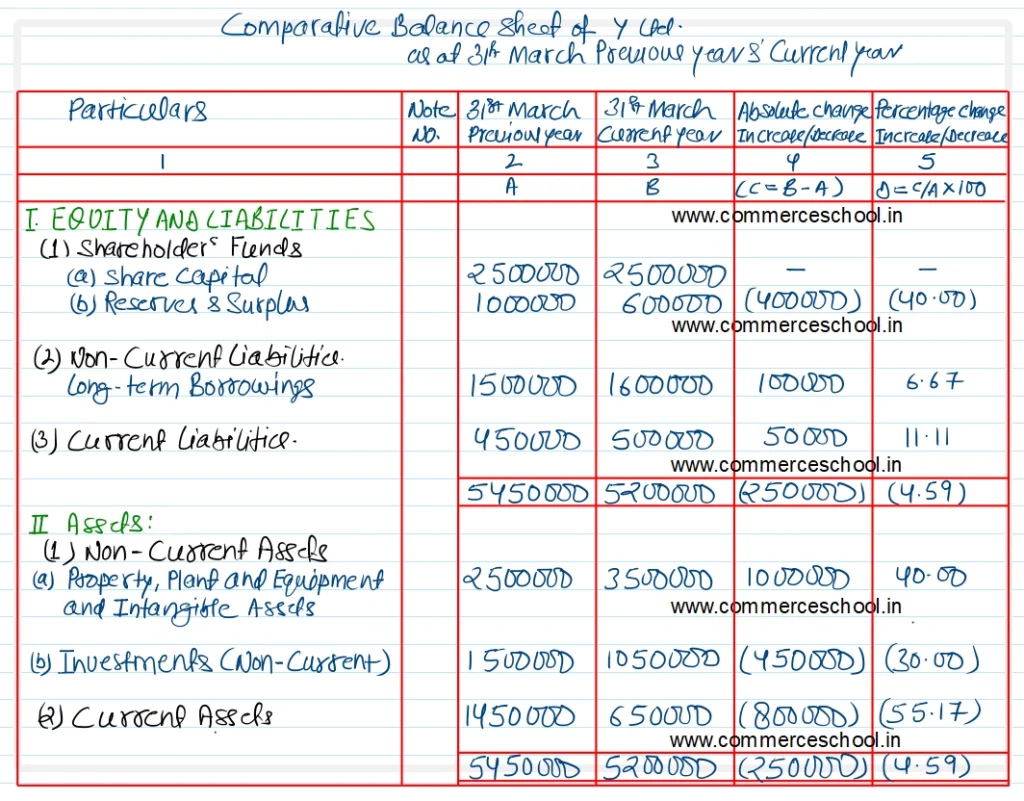 Comparative Balance Sheet of Y Ltd.
as at 31st March Previous year & Current year
Particulars Note No. 31st March Previous year 31st March Current year Absolute change Increase/Decrease Percentage change Increase/Decrease
1 2 3 4 5
A B (C=B-A) D=C/A×100
I. EQUITY AND LIABILITIES www.commerceschool.in
(1) Shareholder's Funds
(a) Share Capital 2500000 2500000 – –
(b) Reserves & Surplus 1000000 600000 (400000) (40.00)
www.commerceschool.in
(2) Non-Current Liabilities.
Long-term Borrowings 1500000 1600000 100000 6.67
(3) Current Liabilities. 450000 500000 50000 11.11
www.commerceschool.in
5450000 5200000 (250000) (4.59)
II Assets:
(1) Non-Current Assets
(a) Property, Plant and Equipment 2500000 3500000 1000000 40.00
and Intangible Assets www.commerceschool.in
(b) Investments (Non-Current) 1500000 1050000 (450000) (30.00)
(2) Current Assets 1450000 650000 (800000) (55.17)
www.commerceschool.in
5450000 5200000 (250000) (4.59)